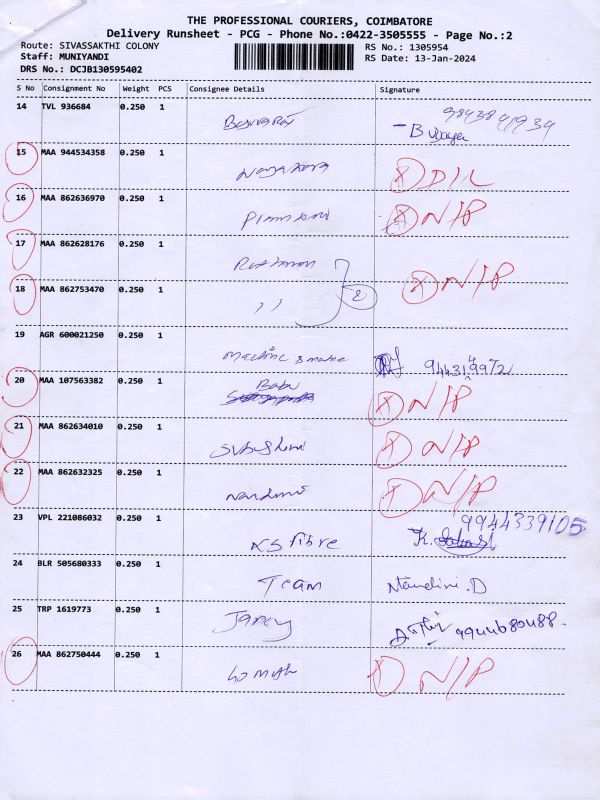 THE PROFESSIONAL COURIERS, COIMBATORE
Delivery Runsheet - PCG - Phone No.:0422-3505555 - Page No.:2
Route: SIVASSAKTHI COLONY
RS No.: 1305954
Staff: MUNIYANDI
RS Date: 13-Jan-2024
DRS No.: DCJB130595402
S No Consignment No Weight PCS Consignee Details Signature
14 TVL 936684 0.250 1
15 MAA 944534358 0.250 1 D/L
16 MAA 862636970 0.250 1 N/P
17 MAA 862628176 0.250 1
18 MAA 862753470 0.250 1 ,, 2 N/P
19 AGR 600021250 0.250 1
20 MAA 107563382 0.250 1 Babu N/P
21 MAA 862634010 0.250 1 N/P
22 MAA 862632325 0.250 1 N/P
23 VPL 221086032 0.250 1 KS fibre K. 9944339105
24 BLR 505680333 0.250 1 Team Nandini.D
25 TRP 1619773 0.250 1 Jancy 9944680488
26 MAA 862750444 0.250 1 N/P